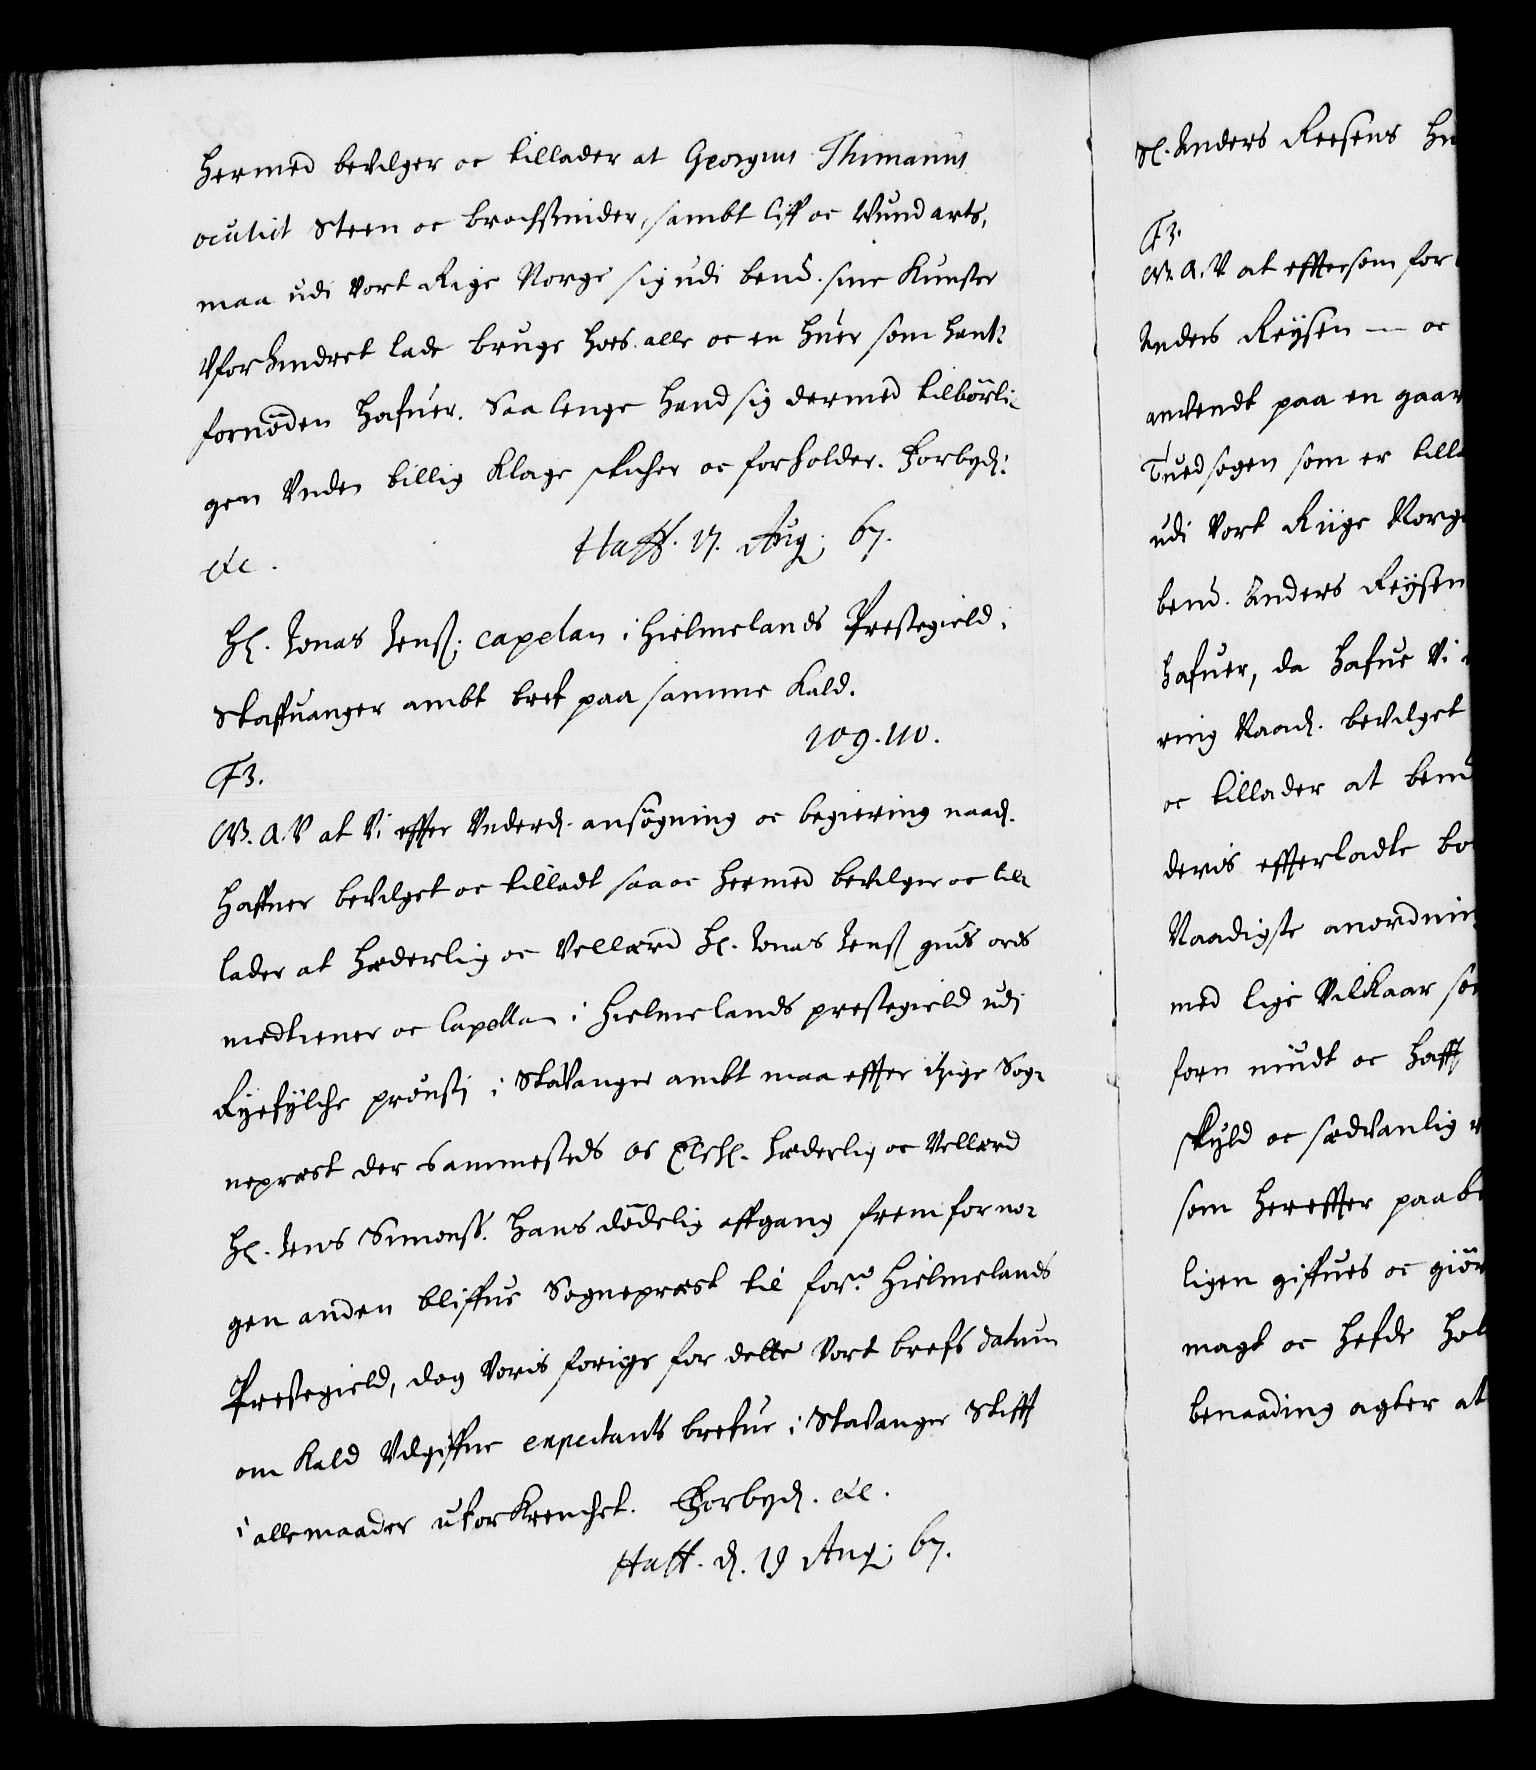 hermed bevilger oc tillader at Georgius Thimanius
oculist Steen oc brochsnider, sambt liff oc Wundarts,
maa udi vort Rige Norge sig udi bend. sine Kunster
Vforhindret lade bruge hoes alle oc en huer som ham
fornøden hafuer. Saa lenge hand sig dermed tilbørli-
gen Vnden billig Klage skicher oc forholder. Forbyd:
etc. Haff. 17. Aug: 67.
H. Jonas Jenß: capelan i Hielmelands Prestegield i
Staffuanger ambt bref paa samme Kald.
109. 110.
F3.
W. A. V at Vi effter Underd. ansøgning oc begiering naad.
haffuer bevilget oc tilladt saa oc hermed bevilger oc till-
lader at Hæderlig oc Vellærd H. Jonas Jenß guds ords
medtiener oc Capellan i Hielmelands prestegield udi
Ryefylche proustj i Stavanger ambt maa effter itzige Sog-
neprest der sammesteds os Elskl. Hæderlig oc Vellærd
H. Jens Simonß. hans dødelig affgang frem for no-
gen anden bliffue Sogneprest til for.ne Hielmelands
Prestegield, dog Voris forige for dette Vort brefs datum
om Kald Udgiffne expectants brefue i Stavanger Stifft
i alle maader uforkrenchet. Forbyd. etc.
Haff. d. 19 Aug: 67.
Sl. Anders Reesens
F3.
W. A. V at efftersom for
Anders Reysen — oc
anvendt paa en gaar
Tuedsogen som er till
udi Vort Riige Norge
bend. Anders Reysen
hafuer, da hafue Vi
ring Naad. bevilget
oc tillader at bend
deris effterladte bo
Naadigste anordning
med lige Vilkaar so
forn niudt oc hafft
skyld oc sædvanlig
som hereffter paab
ligen giffues oc giør
magt oc hefde hol
benaading agter at